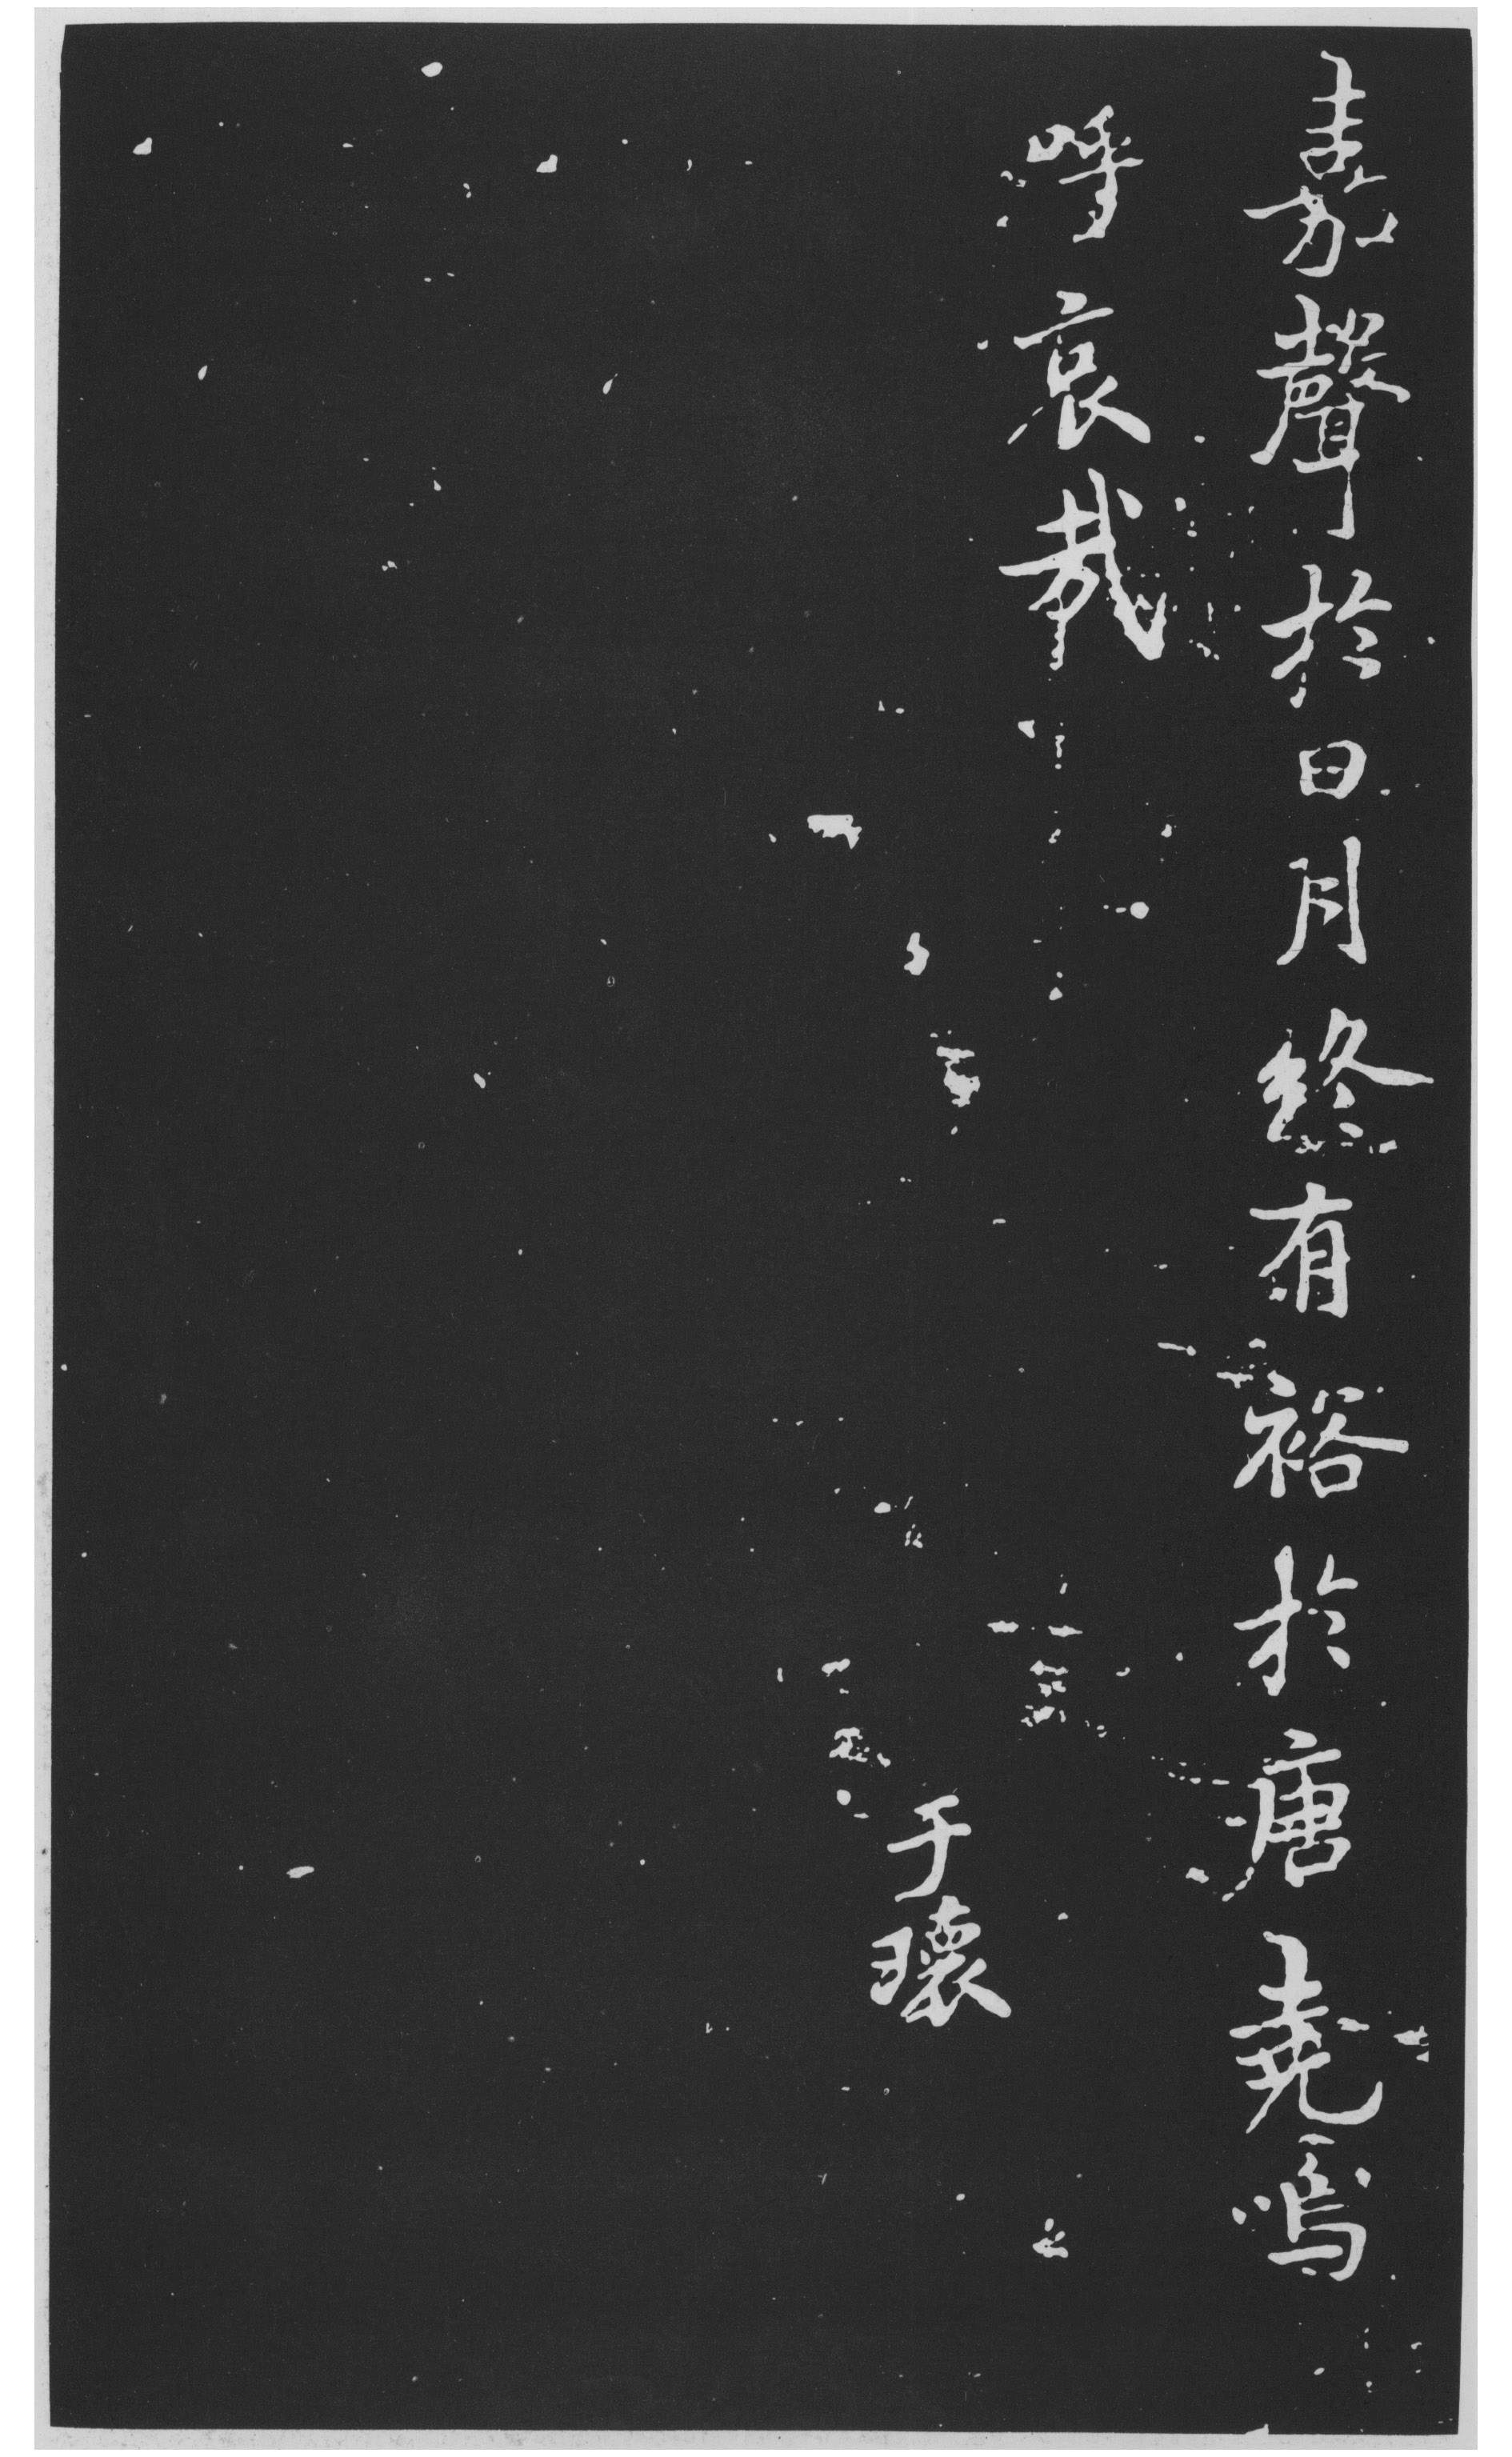 嘉聲於日月終有裕於唐堯嗚
呼哀哉
于瓌